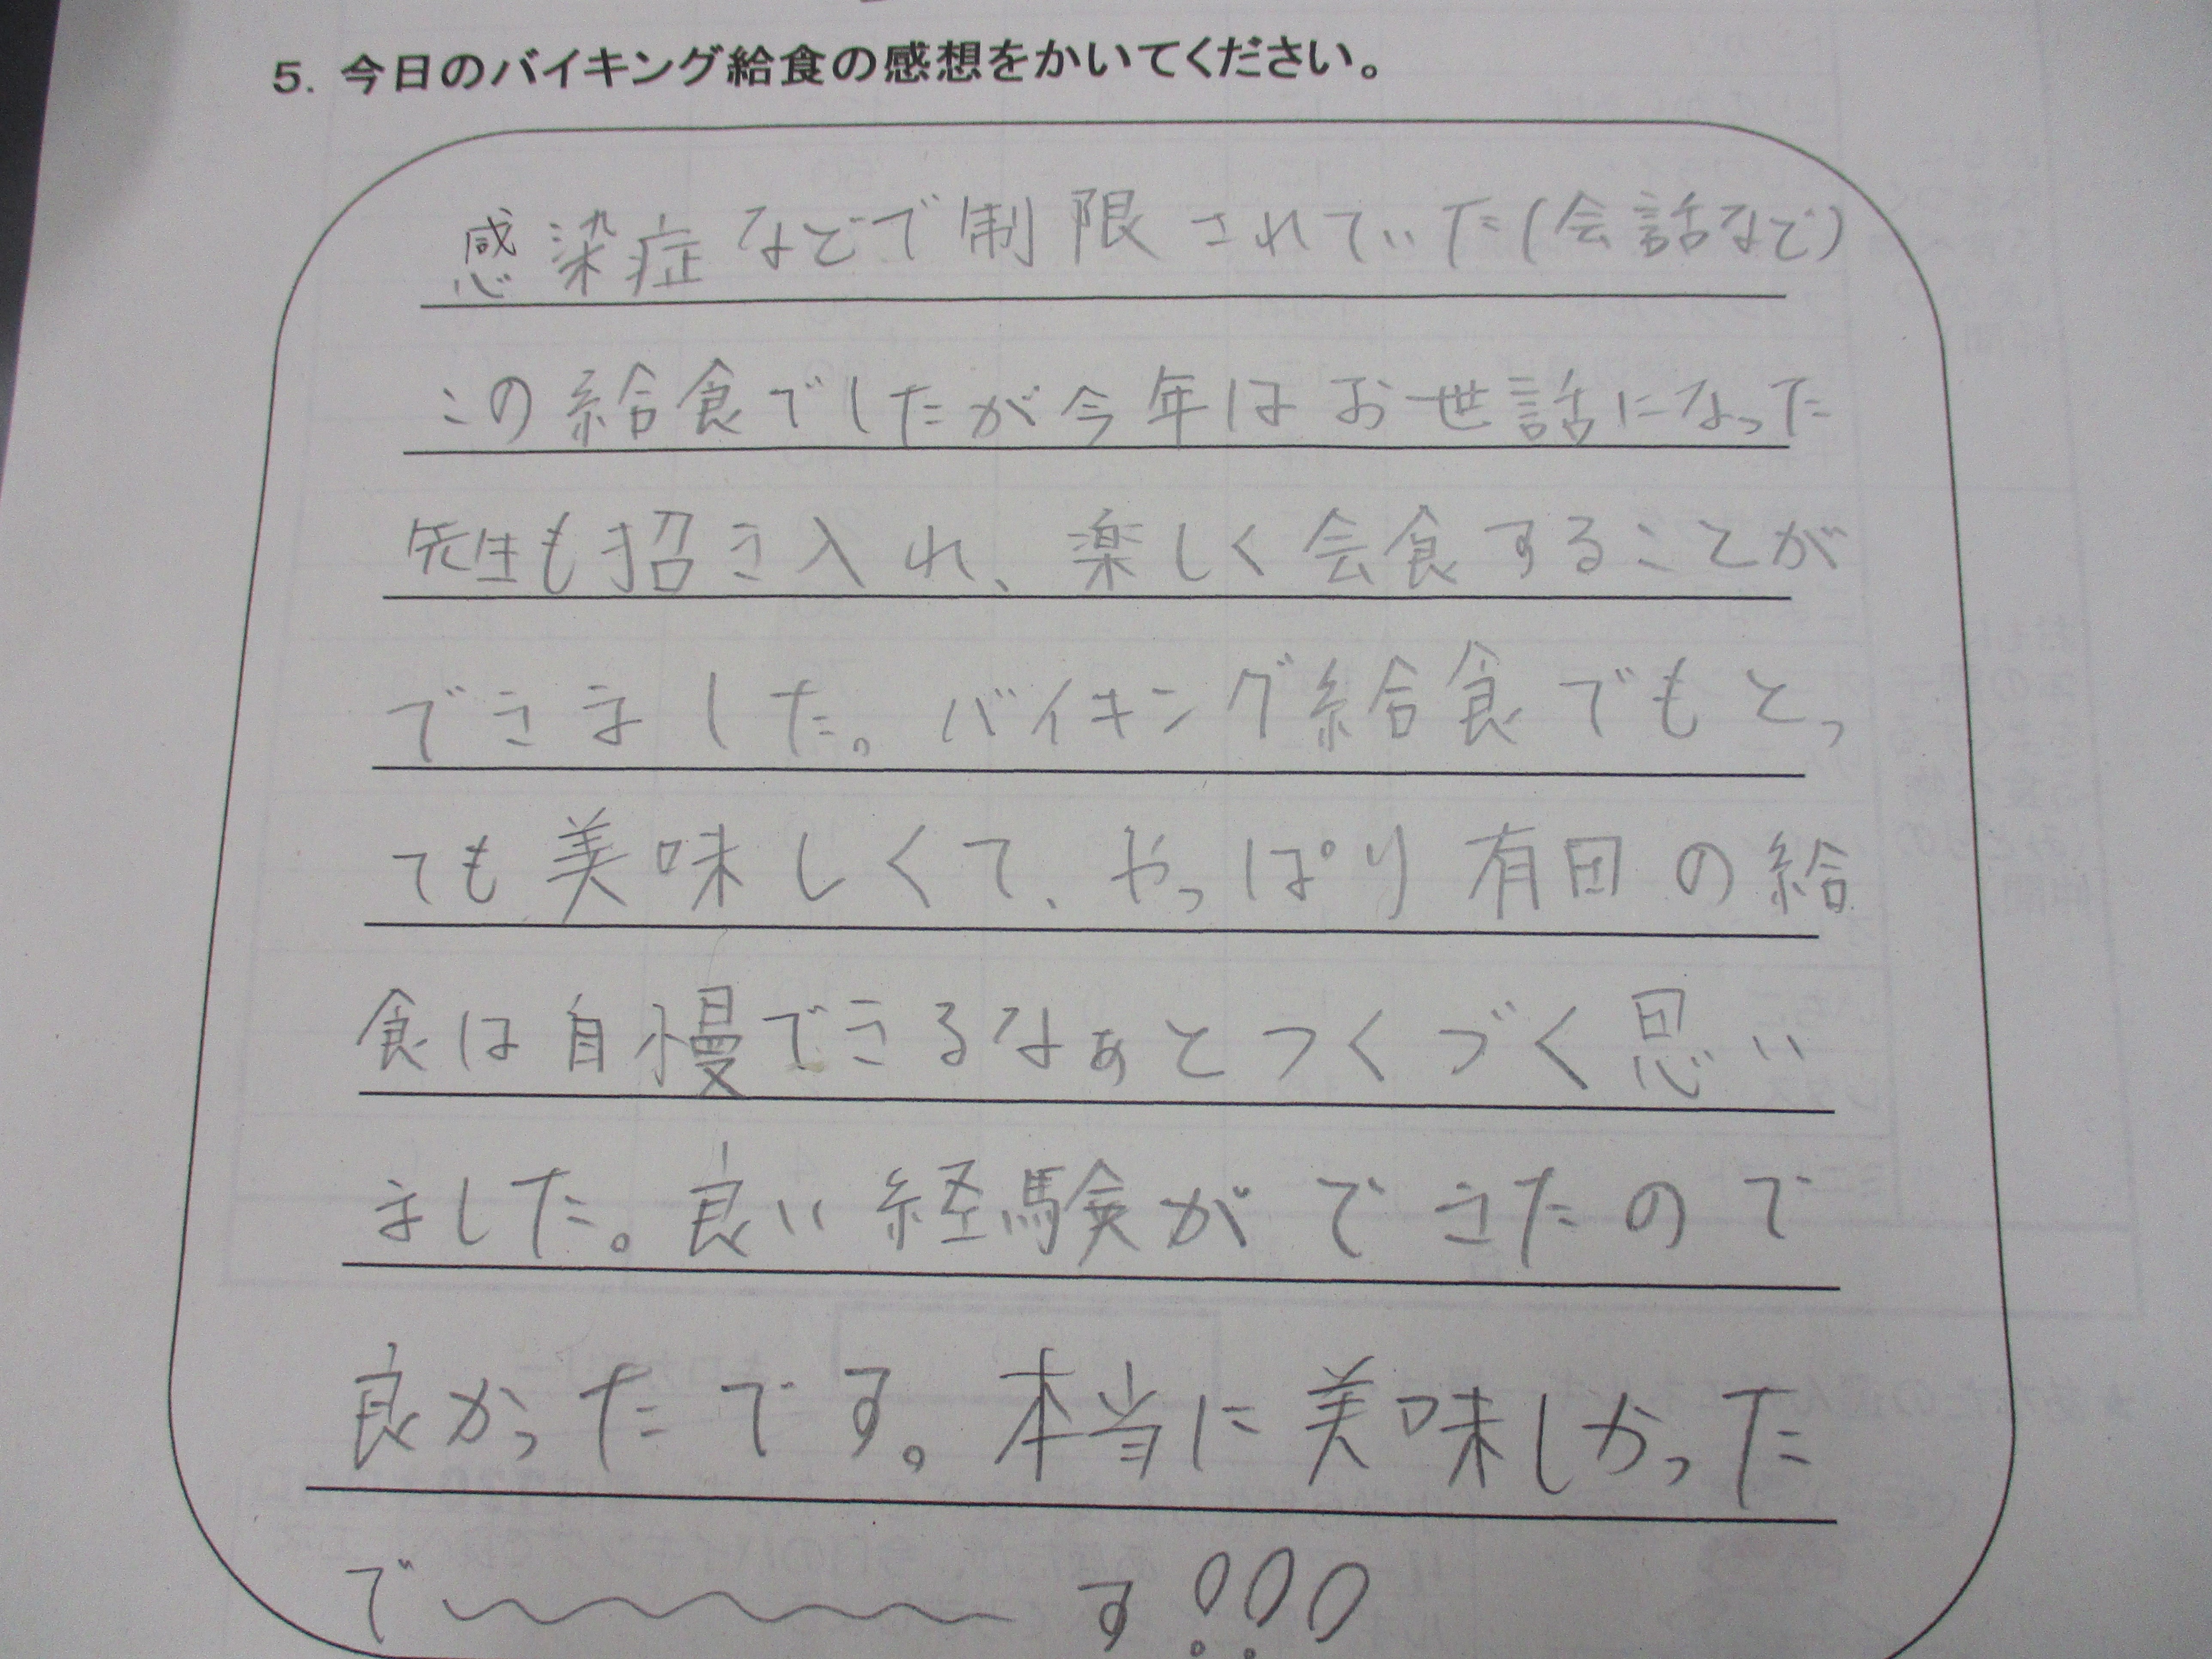 5. 今日のバイキング給食の感想をかいてください。
感染症などで制限されていた(会話など)
この給食でしたが今年はお世話になった
先生も招き入れ、楽しく会食することが
できました。バイキング給食でもとっ
ても美味しくて、やっぱり有田の給
食は自慢できるなぁとつくづく思い
ました。良い経験ができたので
良かったです。本当に美味しかった
で〜〜〜す!!!